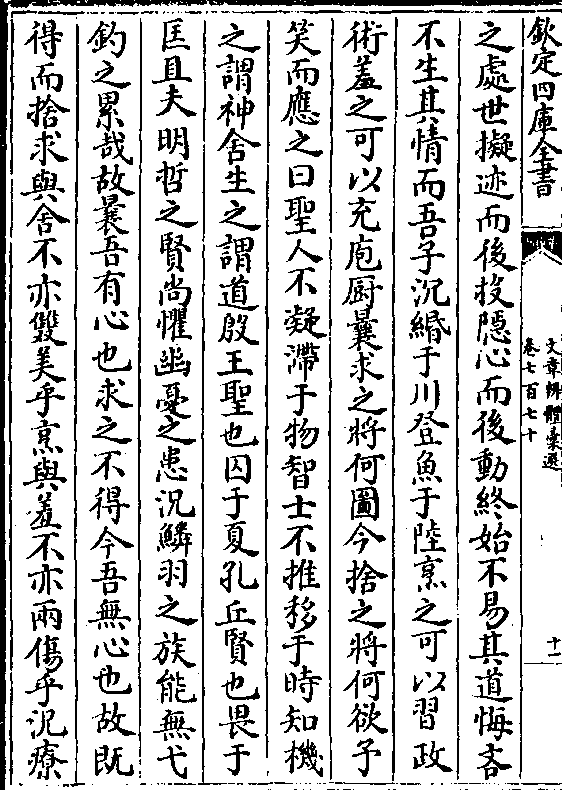 欽定四庫全書
文章辨體彙選
卷七百七十
十一
之處世擬迹而後投隱心而後動終始不易其道悔吝
不生其情而吾子沉緡于川登魚于陸烹之可以習政
術羞之可以充庖厨曩求之將何圖今捨之將何欲予
笑而應之曰聖人不凝滯于物智士不推移于時知機
之謂神舍生之謂道殷王聖也囚于夏孔丘賢也畏于
匡且夫明哲之賢尚懼幽憂之患況鱗羽之族能無弋
釣之累哉故曩吾有心也求之不得今吾無心也故既
得而捨求與舍不亦雙美乎烹與羞不亦兩傷乎況療